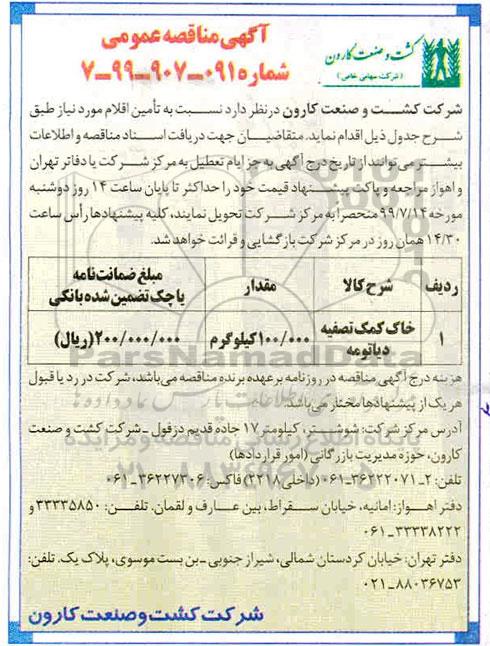 آگهی مناقصه عمومی
شماره ۰۹۱-۹۰۷-۹۹-۷
کشت و صنعت کارون
(شرکت سهامی خاص)
شرکت کشت و صنعت کارون در نظر دارد نسبت به تأمین اقلام مورد نیاز طبق
شرح جدول ذیل اقدام نماید. متقاضیان جهت دریافت اسناد مناقصه و اطلاعات
بیشتر می‌توانند از تاریخ درج آگهی به جز ایام تعطیل به مرکز شرکت یا دفاتر تهران
و اهواز مراجعه و پاکت پیشنهاد قیمت خود را حداکثر تا پایان ساعت ۱۴ روز دوشنبه
مورخه ۹۹/۷/۱۴ منحصراً به مرکز شرکت تحویل نمایند، کلیه پیشنهادها رأس ساعت
۱۴/۳۰ همان روز در مرکز شرکت بازگشایی و قرائت خواهد شد.
ردیف شرح کالا مقدار مبلغ ضمانت‌نامه یا چک تضمین شده بانکی
۱ خاک کمک تصفیه دیاتومه ۱۰۰/۰۰۰ کیلوگرم ۲۰۰/۰۰۰/۰۰۰ (ریال)
هزینه درج آگهی مناقصه در روزنامه بر عهده برنده مناقصه می‌باشد، شرکت در رد یا قبول
هر یک از پیشنهادها مختار می‌باشد.
آدرس مرکز شرکت: شوشتر، کیلومتر ۱۷ جاده قدیم دزفول - شرکت کشت و صنعت
کارون، حوزه مدیریت بازرگانی (امور قراردادها)
تلفن: ۲-۳۶۲۲۲۰۷۱-۰۶۱ (داخلی ۲۲۱۸) فاکس: ۳۶۲۲۷۳۰۶-۰۶۱
دفتر اهواز: امانیه، خیابان سقراط، بین عارف و لقمان. تلفن: ۳۳۳۳۵۸۵۰ و
۳۳۳۳۸۲۲۲-۰۶۱
دفتر تهران: خیابان کردستان شمالی، شیراز جنوبی - بن بست موسوی، پلاک یک. تلفن:
۸۸۰۳۶۷۵۳-۰۲۱
شرکت کشت و صنعت کارون
ParsNamadData
پایگاه اطلاع رسانی مناقصه و مزایده